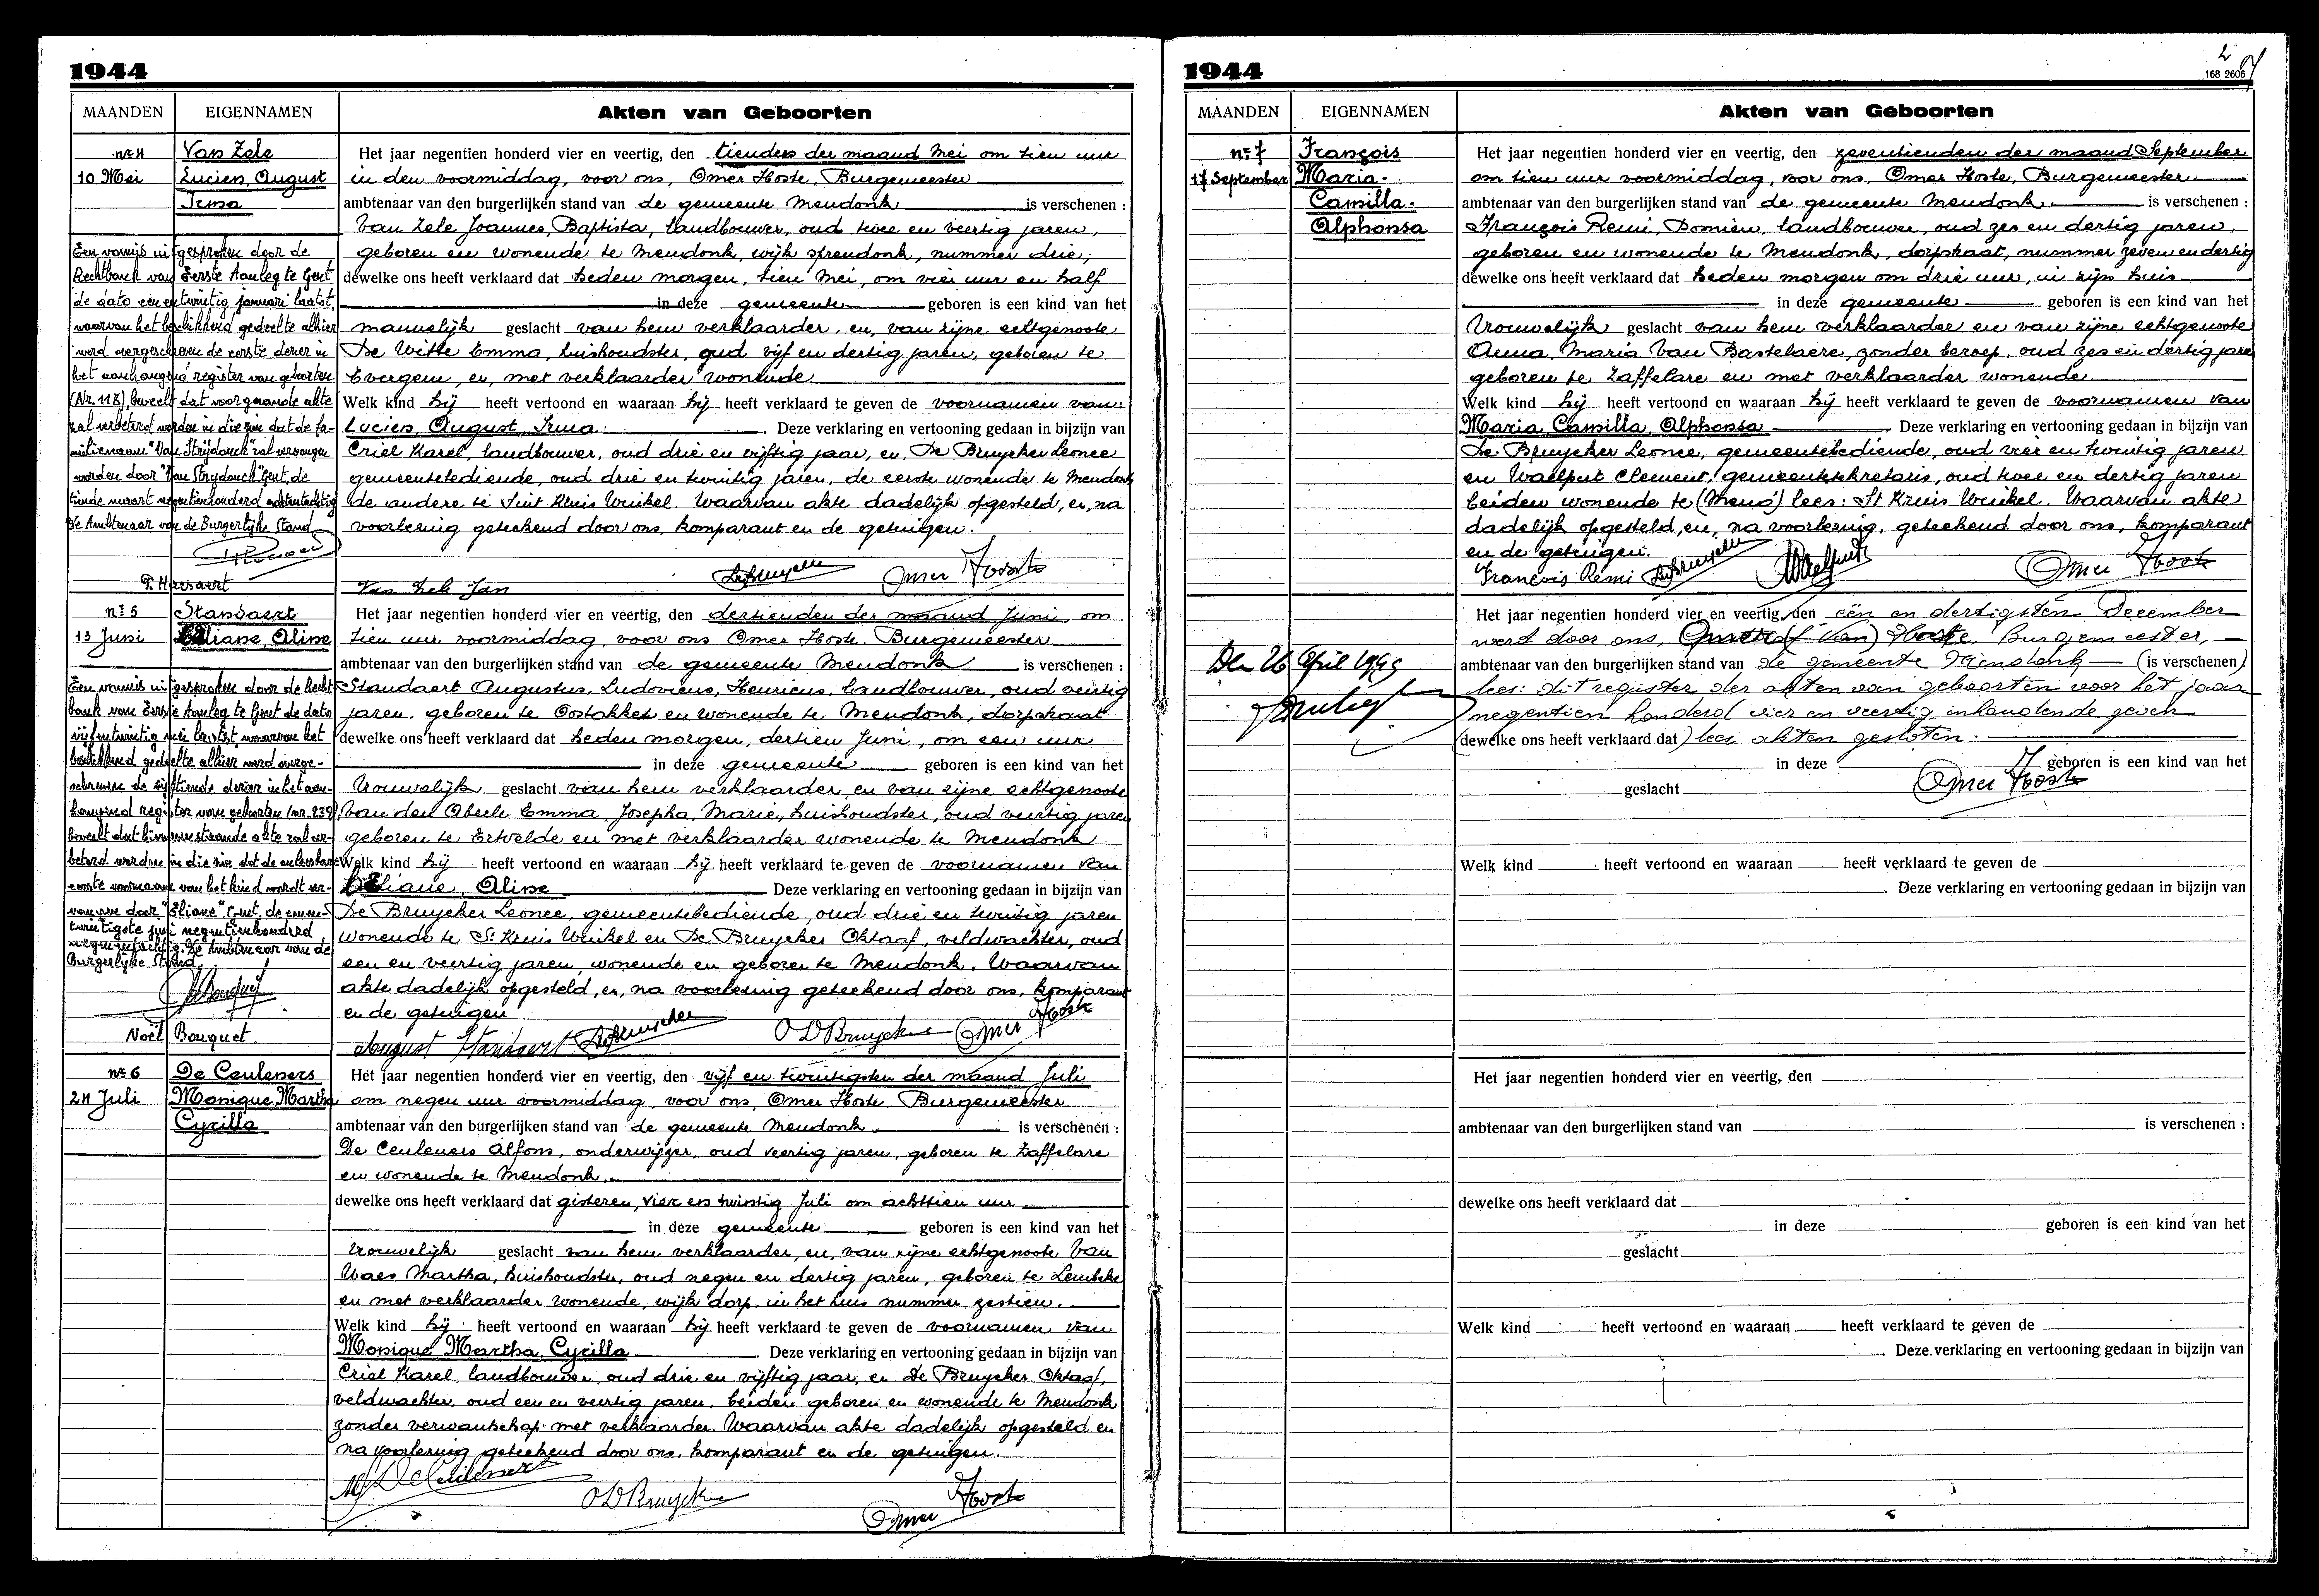 1944
MAANDEN EIGENNAMEN Akten van Geboorten
nr 4 Van Zele
10 Mei Lucien, August
Irma
Een vonnis uitgesproken door de
Rechtbank van Eerste Aanleg te Gent
de dato eenentwintig januari laatst,
waarvan het beschikkend gedeelte alhier
werd overgeschreven de eerste dezer in
het aanhangend register van geboorten
(Nr. 118) beveelt dat voorgaande akte
zal verbeterd worden in die zin dat de fa-
milienaam "Van Strijdonck" zal vervangen
worden door "Van Strydonck" Gent, de
tiende maart negentienhonderd achtentachtig
De Ambtenaar van de Burgerlijke Stand
Het jaar negentien honderd vier en veertig, den tienden der maand Mei om tien uur
in den voormiddag, voor ons, Omer Hoste, Burgemeester
ambtenaar van den burgerlijken stand van de gemeente Mendonk is verschenen :
Van Zele Joannes, Baptista, landbouwer, oud twee en veertig jaren,
geboren en wonende te Mendonk, wijk sprendonk, nummer drie;
dewelke ons heeft verklaard dat heden morgen, tien Mei, om vier uur en half
in deze gemeente geboren is een kind van het
mannelijk geslacht van hem verklaarder, en, van zijne echtgenoote
De Witte Emma, huishoudster, oud vijf en dertig jaren, geboren te
Evergem, en, met verklaarder wonende
Welk kind hij heeft vertoond en waaraan hij heeft verklaard te geven de voornamen van:
Lucien, August, Irma. Deze verklaring en vertooning gedaan in bijzijn van
Criel Karel, landbouwer, oud drie en vijftig jaar, en, De Bruycker Leonce
gemeentebediende, oud drie en twintig jaren, de eerste wonende te Mendonk
de andere te Sint Kruis Winkel. Waarvan akte dadelijk opgesteld, en, na
voorlezing geteekend door ons, komparant en de getuigen.
Van Zele Jan DeBruycker Omer Hoste
nr 5 Standaert
13 Juni Eliane, Aline
Een vonnis uitgesproken door de Recht-
bank van Eerste Aanleg te Gent de dato
vijfentwintig mei laatst, waarvan het
beschikkend gedeelte alhier werd overge-
schreven de vijftiende dezer in het aan-
hangend register van geboorten (nr. 239)
beveelt dat hiernevenstaande akte zal ver-
beterd worden in die zin dat de onleesbare
eerste voornaam van het kind wordt ver-
vangen door "Eliane" Gent, de eenen-
twintigste juni negentienhonderd
De Ambtenaar van de
Burgerlijke Stand,
Noël Bouquet.
Het jaar negentien honderd vier en veertig, den dertienden der maand Juni, om
tien uur voormiddag, voor ons Omer Hoste, Burgemeester
ambtenaar van den burgerlijken stand van de gemeente Mendonk is verschenen :
Standaert Augustus, Ludovicus, Henricus, landbouwer, oud veertig
jaren, geboren te Oostakker en wonende te Mendonk, dorpstraat
dewelke ons heeft verklaard dat heden morgen, dertien Juni, om een uur
in deze gemeente geboren is een kind van het
Vrouwelijk geslacht van hem verklaarder, en van zijne echtgenoote
Van den Abeele Emma, Josepha, Marie, huishoudster, oud veertig jaren
geboren te Ertvelde en met verklaarder wonende te Mendonk
Welk kind hij heeft vertoond en waaraan hij heeft verklaard te geven de voornamen van
Eliane, Aline Deze verklaring en vertooning gedaan in bijzijn van
De Bruycker Leonce, gemeentebediende, oud drie en twintig jaren
wonende te St Kruis Winkel en De Bruycker Oktaaf, veldwachter, oud
een en veertig jaren, wonende en geboren te Mendonk. Waarvan
akte dadelijk opgesteld, en, na voorlezing geteekend door ons, komparant
en de getuigen
August Standaert DeBruycker O DBruycker Omer Hoste
nr 6 De Ceuleners
24 Juli Monique Martha
Cyrilla
Het jaar negentien honderd vier en veertig, den vijf en twintigsten der maand Juli
om negen uur voormiddag, voor ons, Omer Hoste, Burgemeester
ambtenaar van den burgerlijken stand van de gemeente Mendonk is verschenen :
De Ceuleners Alfons, onderwijzer, oud veertig jaren, geboren te Zaffelare
en wonende te Mendonk,
dewelke ons heeft verklaard dat gisteren, vier en twintig Juli om achttien uur
in deze gemeente geboren is een kind van het
Vrouwelijk geslacht van hem verklaarder, en, van zijne echtgenoote Van
Waes Martha, huishoudster, oud negen en dertig jaren, geboren te Lembeke
en met verklaarder wonende, wijk dorp, in het huis nummer zestien.
Welk kind hij heeft vertoond en waaraan hij heeft verklaard te geven de voornamen van
Monique Martha, Cyrilla Deze verklaring en vertooning gedaan in bijzijn van
Criel Karel, landbouwer, oud drie en vijftig jaar, en De Bruycker Oktaaf,
veldwachter, oud een en veertig jaren, beiden geboren en wonende te Mendonk
zonder verwantschap met verklaarder. Waarvan akte dadelijk opgesteld en
na voorlezing geteekend door ons, komparant en de getuigen.
O DBruycker Omer Hoste
1944
168 2606
MAANDEN EIGENNAMEN Akten van Geboorten
nr 7 François
17 September Maria-
Camilla-
Alphonsa
Het jaar negentien honderd vier en veertig, den zeventienden der maand September
om tien uur voormiddag, voor ons, Omer Hoste, Burgemeester.
ambtenaar van den burgerlijken stand van de gemeente Mendonk. is verschenen :
François Remi, Domien, landbouwer, oud zes en dertig jaren,
geboren en wonende te Mendonk, dorpstraat, nummer zeven en dertig
dewelke ons heeft verklaard dat heden morgen om drie uur, in zijn huis
in deze gemeente geboren is een kind van het
Vrouwelijk geslacht van hem verklaarder en van zijne echtgenoote
Anna, Maria Van Bastelaere, zonder beroep, oud zes en dertig jare
geboren te Zaffelare en met verklaarder wonende
Welk kind hij heeft vertoond en waaraan hij heeft verklaard te geven de voornamen van
Maria, Camilla, Alphonsa Deze verklaring en vertooning gedaan in bijzijn van
De Bruycker Leonce, gemeentebediende, oud vier en twintig jaren
en Waelput Clement, gemeentesekretaris, oud twee en dertig jaren
beiden wonende te (Mend) lees: St Kruis Winkel. Waarvan akte
dadelijk opgesteld, en, na voorlezing, geteekend door ons, komparant
en de getuigen.
François Remi DeBruycker Waelput Omer Hoste
Het jaar negentien honderd vier en veertig, den een en dertigsten December
werd door ons, Hoste, Burgemeester,
ambtenaar van den burgerlijken stand van de gemeente Mendonk (is verschenen)
lees: dit register der akten van geboorten voor het jaar
negentien honderd vier en veertig inhoudende zeven
(dewelke ons heeft verklaard dat) lees akten gesloten.
in deze geboren is een kind van het
geslacht Omer Hoste
Den 26 April 1945
Welk kind heeft vertoond en waaraan heeft verklaard te geven de
. Deze verklaring en vertooning gedaan in bijzijn van
Het jaar negentien honderd vier en veertig, den
ambtenaar van den burgerlijken stand van is verschenen :
dewelke ons heeft verklaard dat
in deze geboren is een kind van het
geslacht
Welk kind heeft vertoond en waaraan heeft verklaard te geven de
. Deze verklaring en vertooning gedaan in bijzijn van